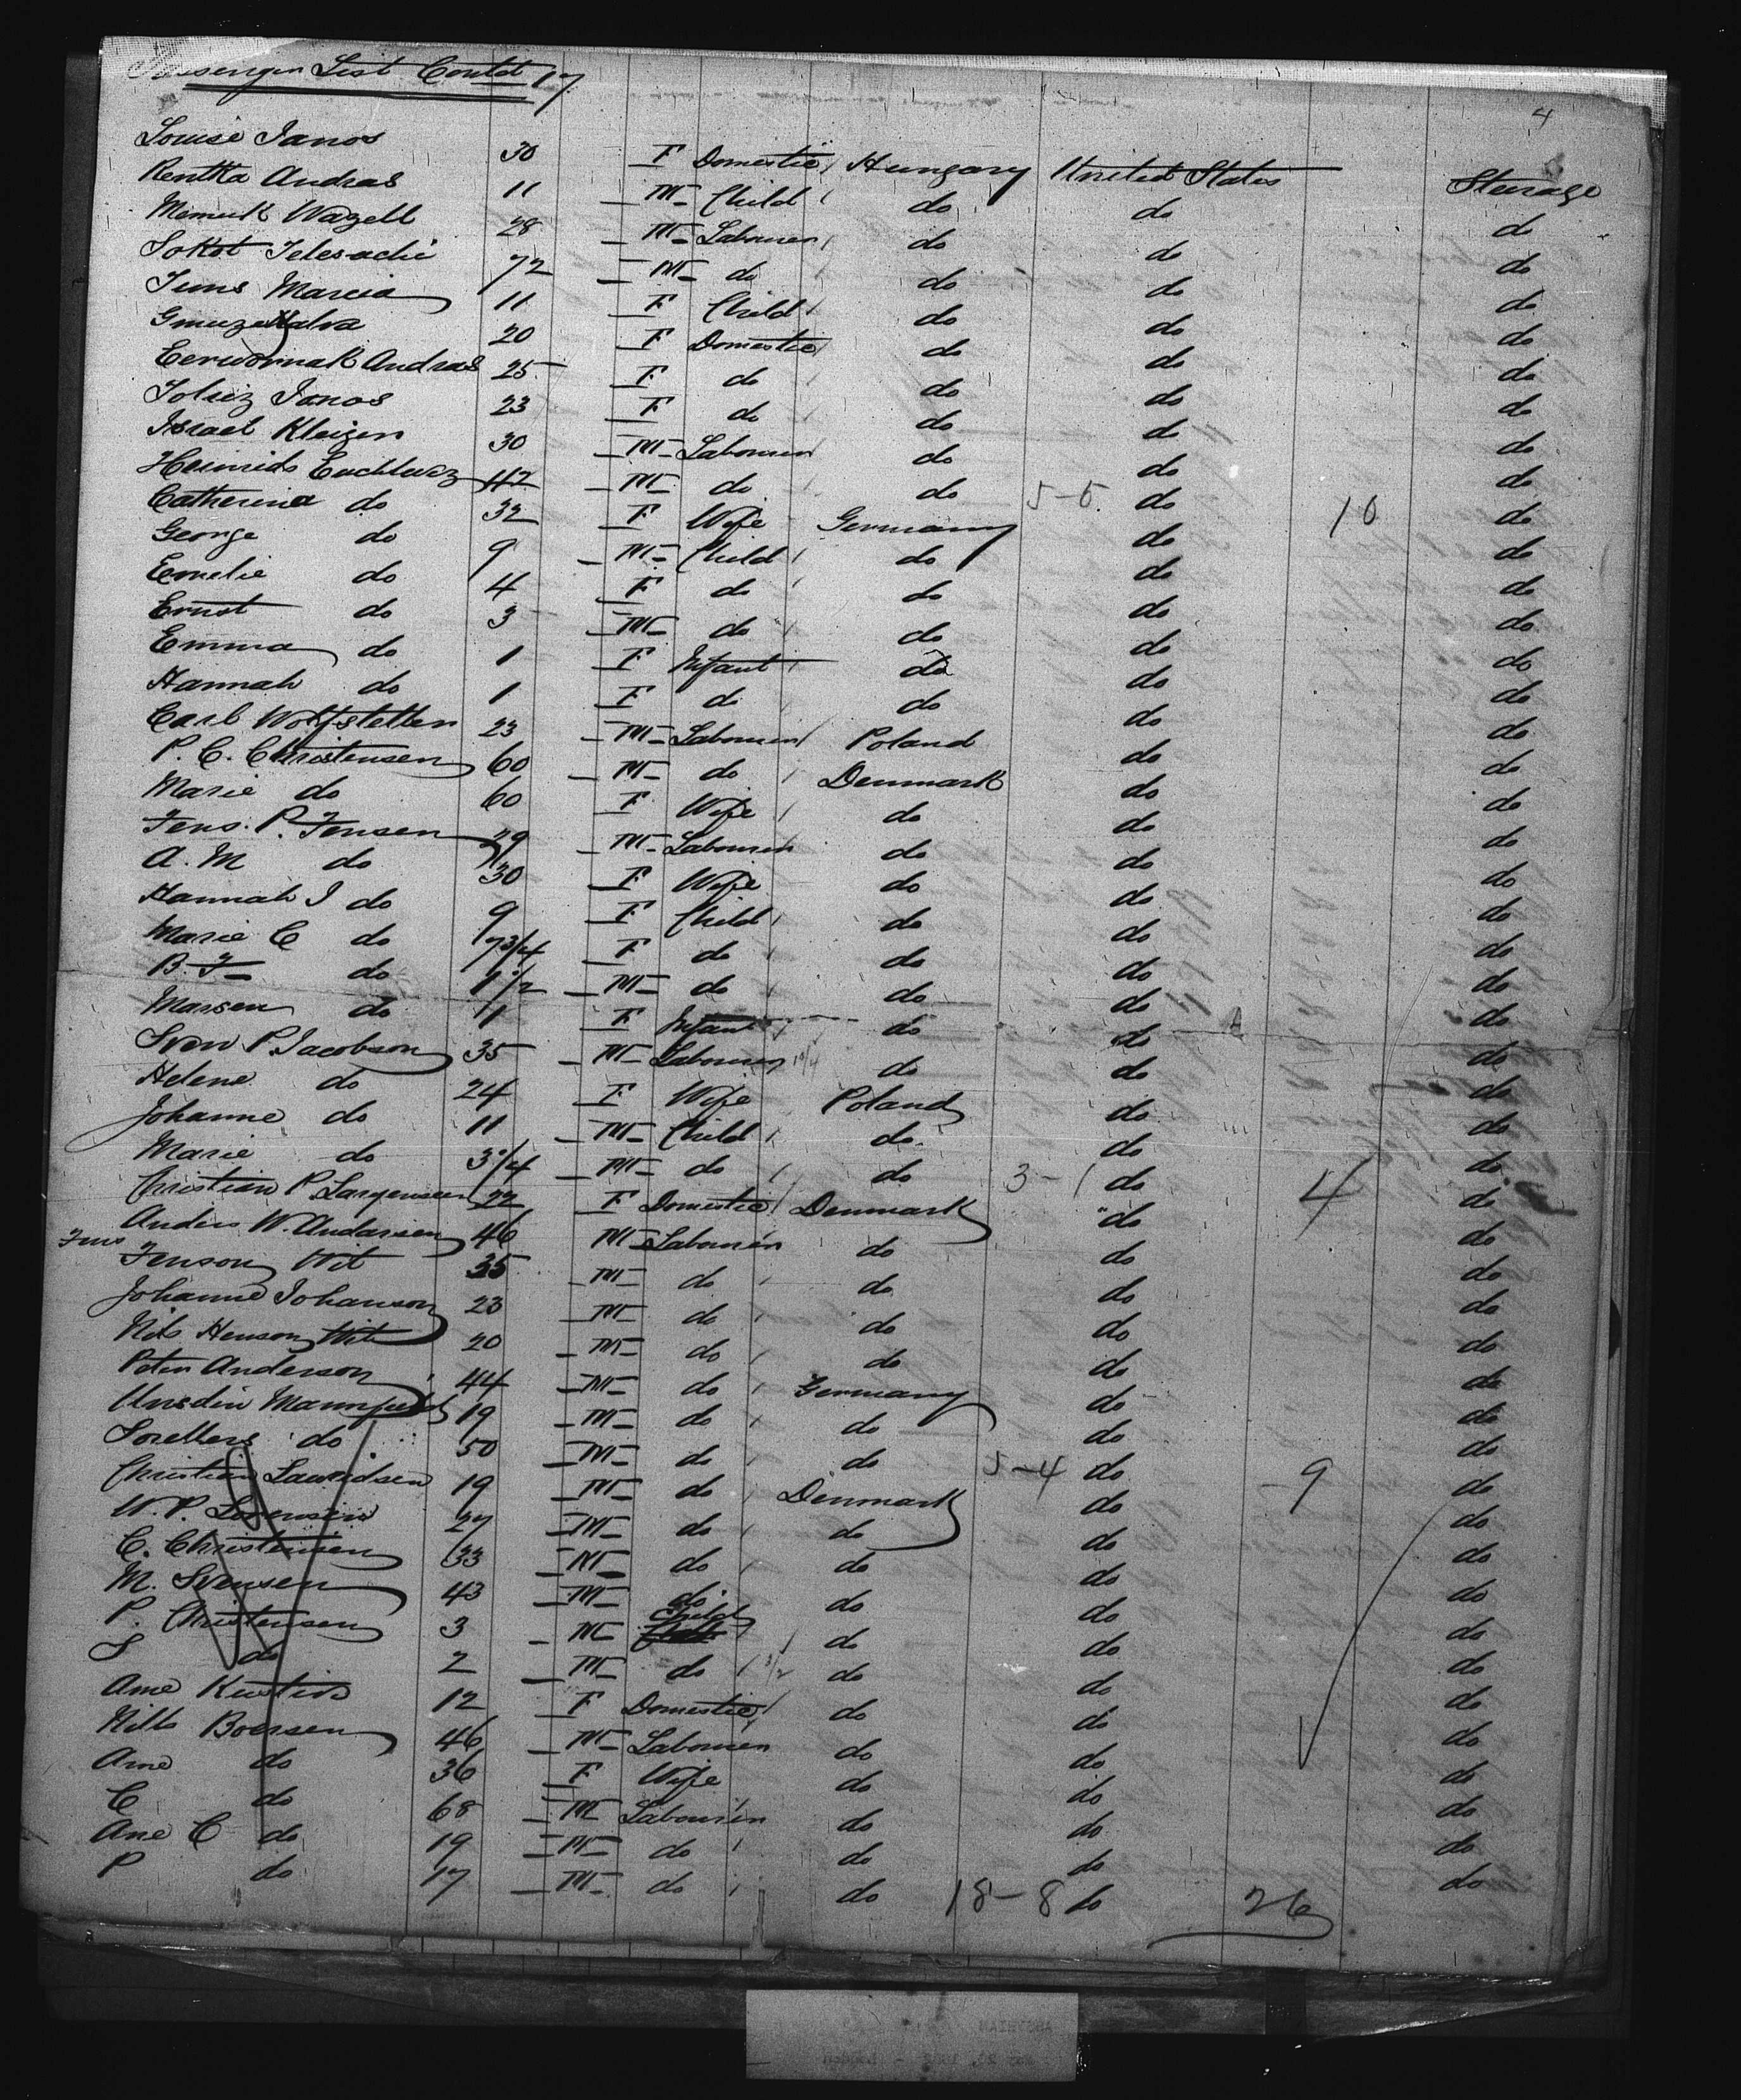 Passenger List Contd 17
4
Louise Janos 30 F Domestic Hungary United States Steerage
Rentka Andras 11 M Child do do do
Wazell 28 M Labourer do do do
Sokot 72 M do do do do
Marcia 11 F Child do do do
20 F Domestic do do do
Andras 25 F do do do do
Janos 23 F do do do do
Israel Kleizen 30 M Labourer do do do
42 M do do 5-5 do 10 do
Catherina do 32 F Wife Germany do do
George do 9 M Child do do do
Emelie do 4 F do do do do
Ernst do 3 M do do do do
Emma do 1 F Infant do do do
Hannah do 1 F do do do do
Carl Wolfstetten 23 M Labourer Poland do do
P. C. Christensen 60 M do Denmark do do
Marie do 60 F Wife do do do
Jens. P. Jensen 29 M Labourer do do do
A. M do 30 F Wife do do do
Hannah J do 9 F Child do do do
Marie C do 7 3/4 F do do do do
B. J do 1 1/2 M do do do do
Marsen do 1 F Infant do do do
Sven P. Jacobson 35 M Labourer 10/4 do do do
Helene do 24 F Wife Poland do do
Johanne do 11 M Child do do do
Marie do M do do 3-1 do 4 do
Christian P Largensen 22 F Domestic Denmark do do
Anders W. Andarsen 46 M Labourer do do do
Jens Jenson Wit 35 M do do do do
Johanne Johanson 23 M do do do do
Nils Henson Wit 20 M do do do do
Peter Anderson 44 M do Germany do do
19 M do do do do
do 50 M do do 5-4 do 9 do
Christian Lauridsen 19 M do Denmark do do
W. P. Lorensen 27 M do do do do
C. Christensen 33 M do do do do
M. Svensen 43 M do do do do
P. Christensen 3 M Child do do do
S do 2 M do 3/2 do do do
Ane Kirstin 12 F Domestic do do do
Nills Boersen 46 M Labourer do do do
Ane do 36 F Wife do do do
C do 68 M Labourer do do do
Ane C do 19 M do do do do
P do 17 M do do 18-8 do 26 do